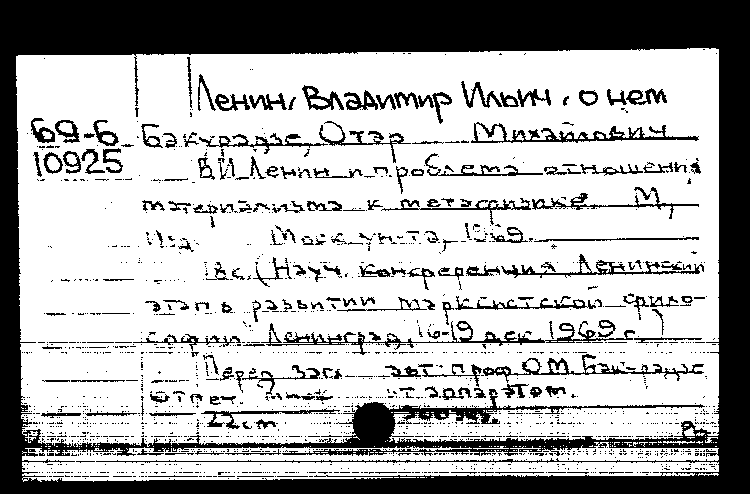 Ленин, Владимир Ильич, о нем
69-6 Бакурадзе, Отар Михайлович
10925 В.И. Ленин и проблема отношения
материализма к метафизике. М.,
Изд. Моск ун-та, 1969.
18 с. (Науч. конференция "Ленинский
этап в развитии марксистской фило-
софии" Ленинград, 16-19 дек. 1969 г.)
Перед загл. авт.: проф О.М. Бакурадзе
Отпеч. множ. ат аппаратом.
22 см 300 экз.